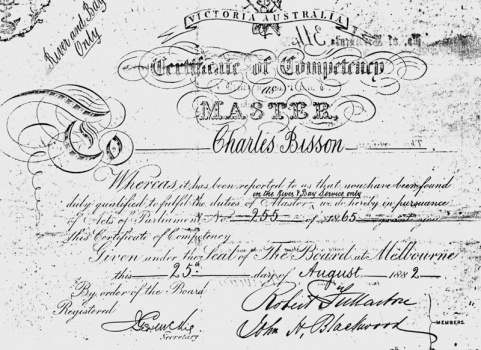 VICTORIA AUSTRALIA
River and Bay
Only
Certificate of Competency
as
MASTER
To
Charles Bisson
Whereas it has been reported to us that you have been found
in the River & Bay Service only
duly qualified to fulfil the duties of Master, we do hereby in pursuance
of Acts of Parliament No 255 of 1865, grant you
this Certificate of Competency
Given under the Seal of The Board at Melbourne
this 25th day of August 1882
By order of the Board
Registered
Robert Fullarton
John H. Blackwood
MEMBERS.
Secretary